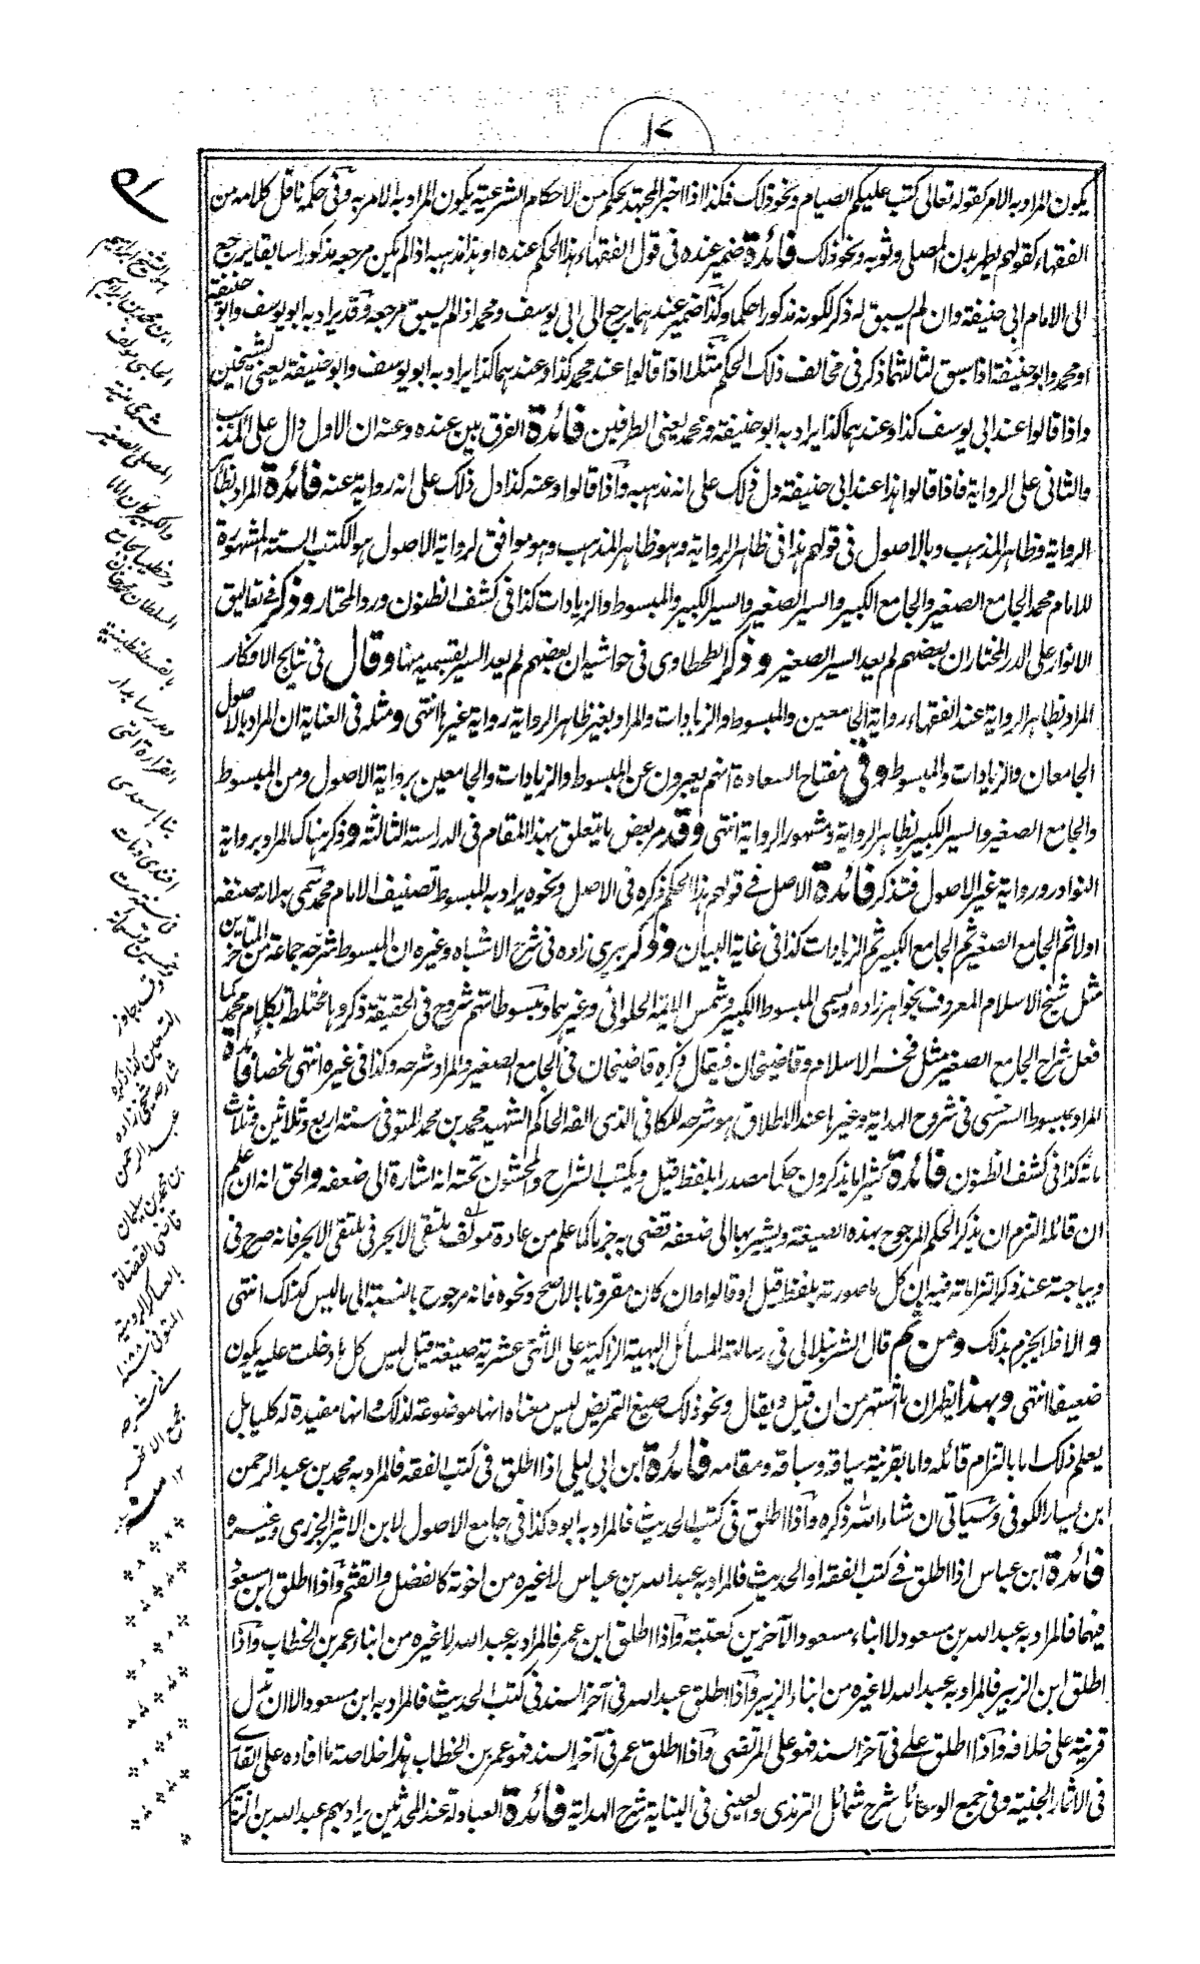 ١٧
يكون المراد به الامر كقوله تعالى كتب عليكم الصيام ونحو ذلك فكذا اذا اخبر المجتهد بحكم من الاحكام الشرعية يكون المراد به الامر به وفى حكمه ناقل كلامه من
الفقهاء كقولهم يطهر بدن المصلى وثوبه ونحو ذلك فائدة ضمير عنده فى قول الفقهاء هذا الحكم عنده او هذا مذهبه اذا لم يكن مرجعه مذكورا سابقا يرجع
الى الامام ابى حنيفة وان لم يسبق له ذكر لكونه مذكورا حكما وكذا ضمير عندهما يرجع الى ابى يوسف ومحمد اذا لم يسبق مرجعه وقد يراد به ابو يوسف وابو حنيفة
او محمد وابو حنيفة اذا سبق لثالثهما ذكر فى مخالف ذلك الحكم مثلا اذا قالوا عند محمد كذا وعندهما كذا يراد به ابو يوسف وابو حنيفة يعنى الشيخين
واذا قالوا عند ابى يوسف كذا وعندهما كذا يراد به ابو حنيفة ومحمد يعنى الطرفين فائدة الفرق بين عنده وعنه ان الاول دال على المذهب
والثانى على الرواية فاذا قالوا هذا عند ابى حنيفة دل ذلك على انه مذهبه واذا قالوا وعنه كذا دل ذلك على انه رواية عنه فائدة المراد بظاهر
الرواية وظاهر المذهب وبالاصول فى قولهم هذا فى ظاهر الرواية وهو ظاهر المذهب وهو موافق لرواية الاصول هو الكتب الستة المشهورة
للامام محمد الجامع الصغير والجامع الكبير والسير الصغير والسير الكبير والمبسوط والزيادات كذا فى كشف الظنون ورد المحتار وذكر فى تعاليق
الانوار على الدر المختار ان بعضهم لم يعد السير الصغير وذكر الطحطاوى فى حواشيه ان بعضهم لم يعد السير بقسميه منها وقال فى نتايج الافكار
المراد بظاهر الرواية عند الفقهاء رواية الجامعين والمبسوط والزيادات والمراد بغير ظاهر الرواية رواية غيرها انتهى ومثله فى العناية ان المراد بالاصول
الجامعان والزيادات والمبسوط وفى مفتاح السعادة انهم يعبرون عن المبسوط والزيادات والجامعين برواية الاصول ومن المبسوط
والجامع الصغير والسير الكبير بظاهر الرواية ومشهور الرواية انتهى وقد مر بعض ما يتعلق بهذا المقام فى الدراسة الثالثة وذكر هناك المراد برواية
النوادر ورواية غير الاصول فتذكر فائدة الاصل فى قولهم هذا الحكم ذكره فى الاصل ونحوه يراد به المبسوط تصنيف الامام محمد سمى به لانه صنفه
اولا ثم الجامع الصغير ثم الجامع الكبير ثم الزيادات كذا فى غاية البيان وذكر بيرى زاده فى شرح الاشباه وغيره ان المبسوط شرحه جماعة من المتاخرين
مثل شيخ الاسلام المعروف بخواهر زاده ويسمى المبسوط الكبير وشمس الائمة الحلوانى وغيرهما ومبسوطاتهم شروح فى الحقيقة ذكروها مختلطة بكلام محمد كما
فعل شراح الجامع الصغير مثل فخر الاسلام وقاضيخان فيقال ذكره قاضيخان فى الجامع الصغير والمراد شرحه وكذا فى غيره انتهى ملخصا فائدة
المراد بمبسوط السرخسى فى شروح الهداية وغيرها عند الاطلاق هو شرحه للكافى الذى الفه الحاكم الشهيد محمد بن محمد المتوفى سنة اربع وثلاثين وثلاث
مائة كذا فى كشف الظنون فائدة كثيرا ما يذكرون حكما مصدرا بلفظ قيل ويكتب الشراح والمحشون تحته انه اشارة الى ضعفه والحق انه ان علم
ان قائله التزم ان يذكر الحكم المرجوح بهذه الصيغة ويشير بها الى ضعفه قضى به جزما كما علم من عادة مؤلف ملتقى الابحر فى ملتقى الابحر فانه صرح فى
ديباجته عند ذكر التزاماته فيه ان كل ما صورته بلفظ قيل او قالوا وان كان مقرونا بالاصح ونحوه فانه مرجوح بالنسبة الى ما ليس كذلك انتهى
والا فلا يجزم بذلك ومن ثم قال الشرنبلالى فى رسالته المسائل البهية الزاكية على الاثنى عشرية صيغة قيل ليس كل ما دخلت عليه يكون
ضعيفا انتهى وبهذا يظهر ان ما اشتهر من ان قيل ويقال ونحو ذلك صيغ التمريض ليس معناه انها موضوعة لذلك وانها مفيدة له كليا بل
يعلم ذلك اما بالتزام قائله واما بقرينة سياقه وسباقه ومقامه فائدة ابن ابى ليلى اذا اطلق فى كتب الفقه فالمراد به محمد بن عبد الرحمن
ابن يسار الكوفى وسياتى ان شاء الله ذكره واذا اطلق فى كتب الحديث فالمراد به ابوه كذا فى جامع الاصول لابن الاثير الجزرى وغيره
فائدة ابن عباس اذا اطلق فى كتب الفقه او الحديث فالمراد به عبد الله بن عباس لا غيره من اخوته كالفضل والقثم واذا اطلق ابن مسعود
فيهما فالمراد به عبد الله بن مسعود لا ابناء مسعود الآخرين كعتبة واذا اطلق ابن عمر فالمراد به عبد الله لا غيره من ابناء عمر بن الخطاب واذا
اطلق ابن الزبير فالمراد به عبد الله لا غيره من ابناء الزبير واذا اطلق عبد الله فى آخر السند فى كتب الحديث فالمراد به ابن مسعود الا ان تدل
قرينة على خلافه واذا اطلق على فى آخر السند فهو على المرتضى واذا اطلق عمر فى آخر السند فهو عمر بن الخطاب هذا خلاصة ما افاده على القارى
فى الاثمار الجنية وفى جمع الوسائل شرح شمائل الترمذى والعينى فى البناية شرح الهداية فائدة العبادلة عند المحدثين يراد بهم عبد الله بن الزبير
هو الشيخ ابراهيم
ابن محمد بن ابراهيم
الحلبى مؤلف
شرحى منية
المصلى الصغير
والكبير كان اماما
وخطيبا بجامع
السلطان محمد خان
بالقسطنطينية
ومدرسا بدار
القراءة التى
بناها سعدى
افندى ومات
وخمسين وتسعمائة
وقد جاوز
التسعين كذا ذكره
شارحه شيخى زاده
عبد الرحمن
بن محمد بن سليمان
قاضى القضاة
بالعساكر الرومية
المتوفى سنة
فى شرحه
مجمع الانهر
١٢ منه